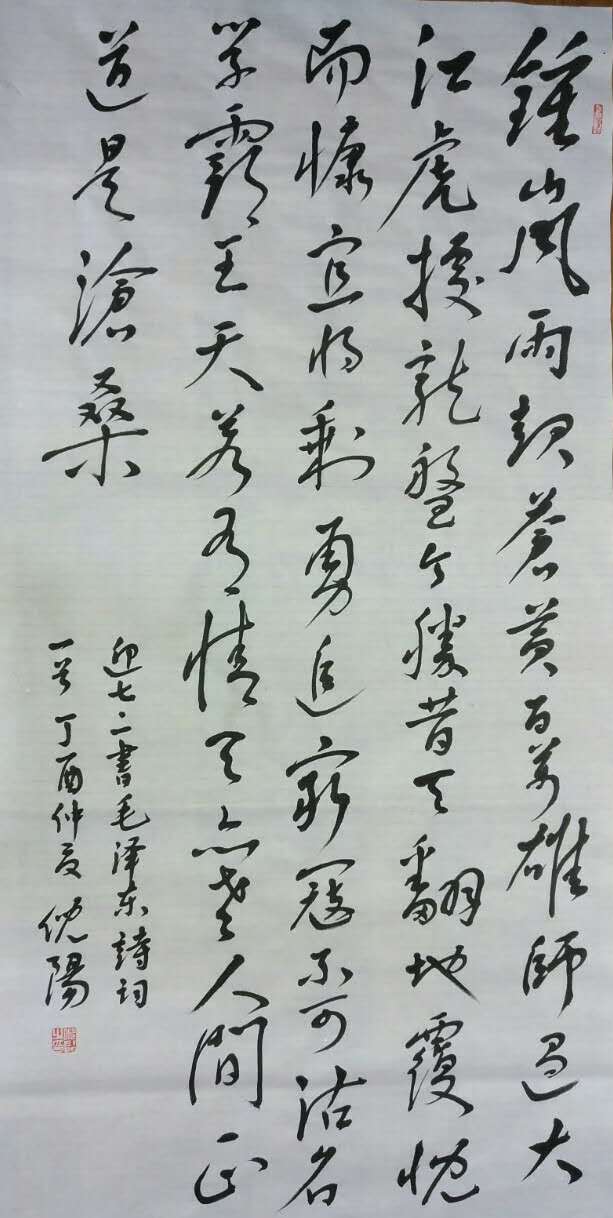 鍾山風雨起蒼黃百萬雄師過大
江虎據龍盤今勝昔天翻地覆慨
而慷宜將剩勇追窮寇不可沽名
學霸王天若有情天亦老人間正
道是滄桑
迎七一書毛泽东詩詞
一首丁酉仲夏倪陽